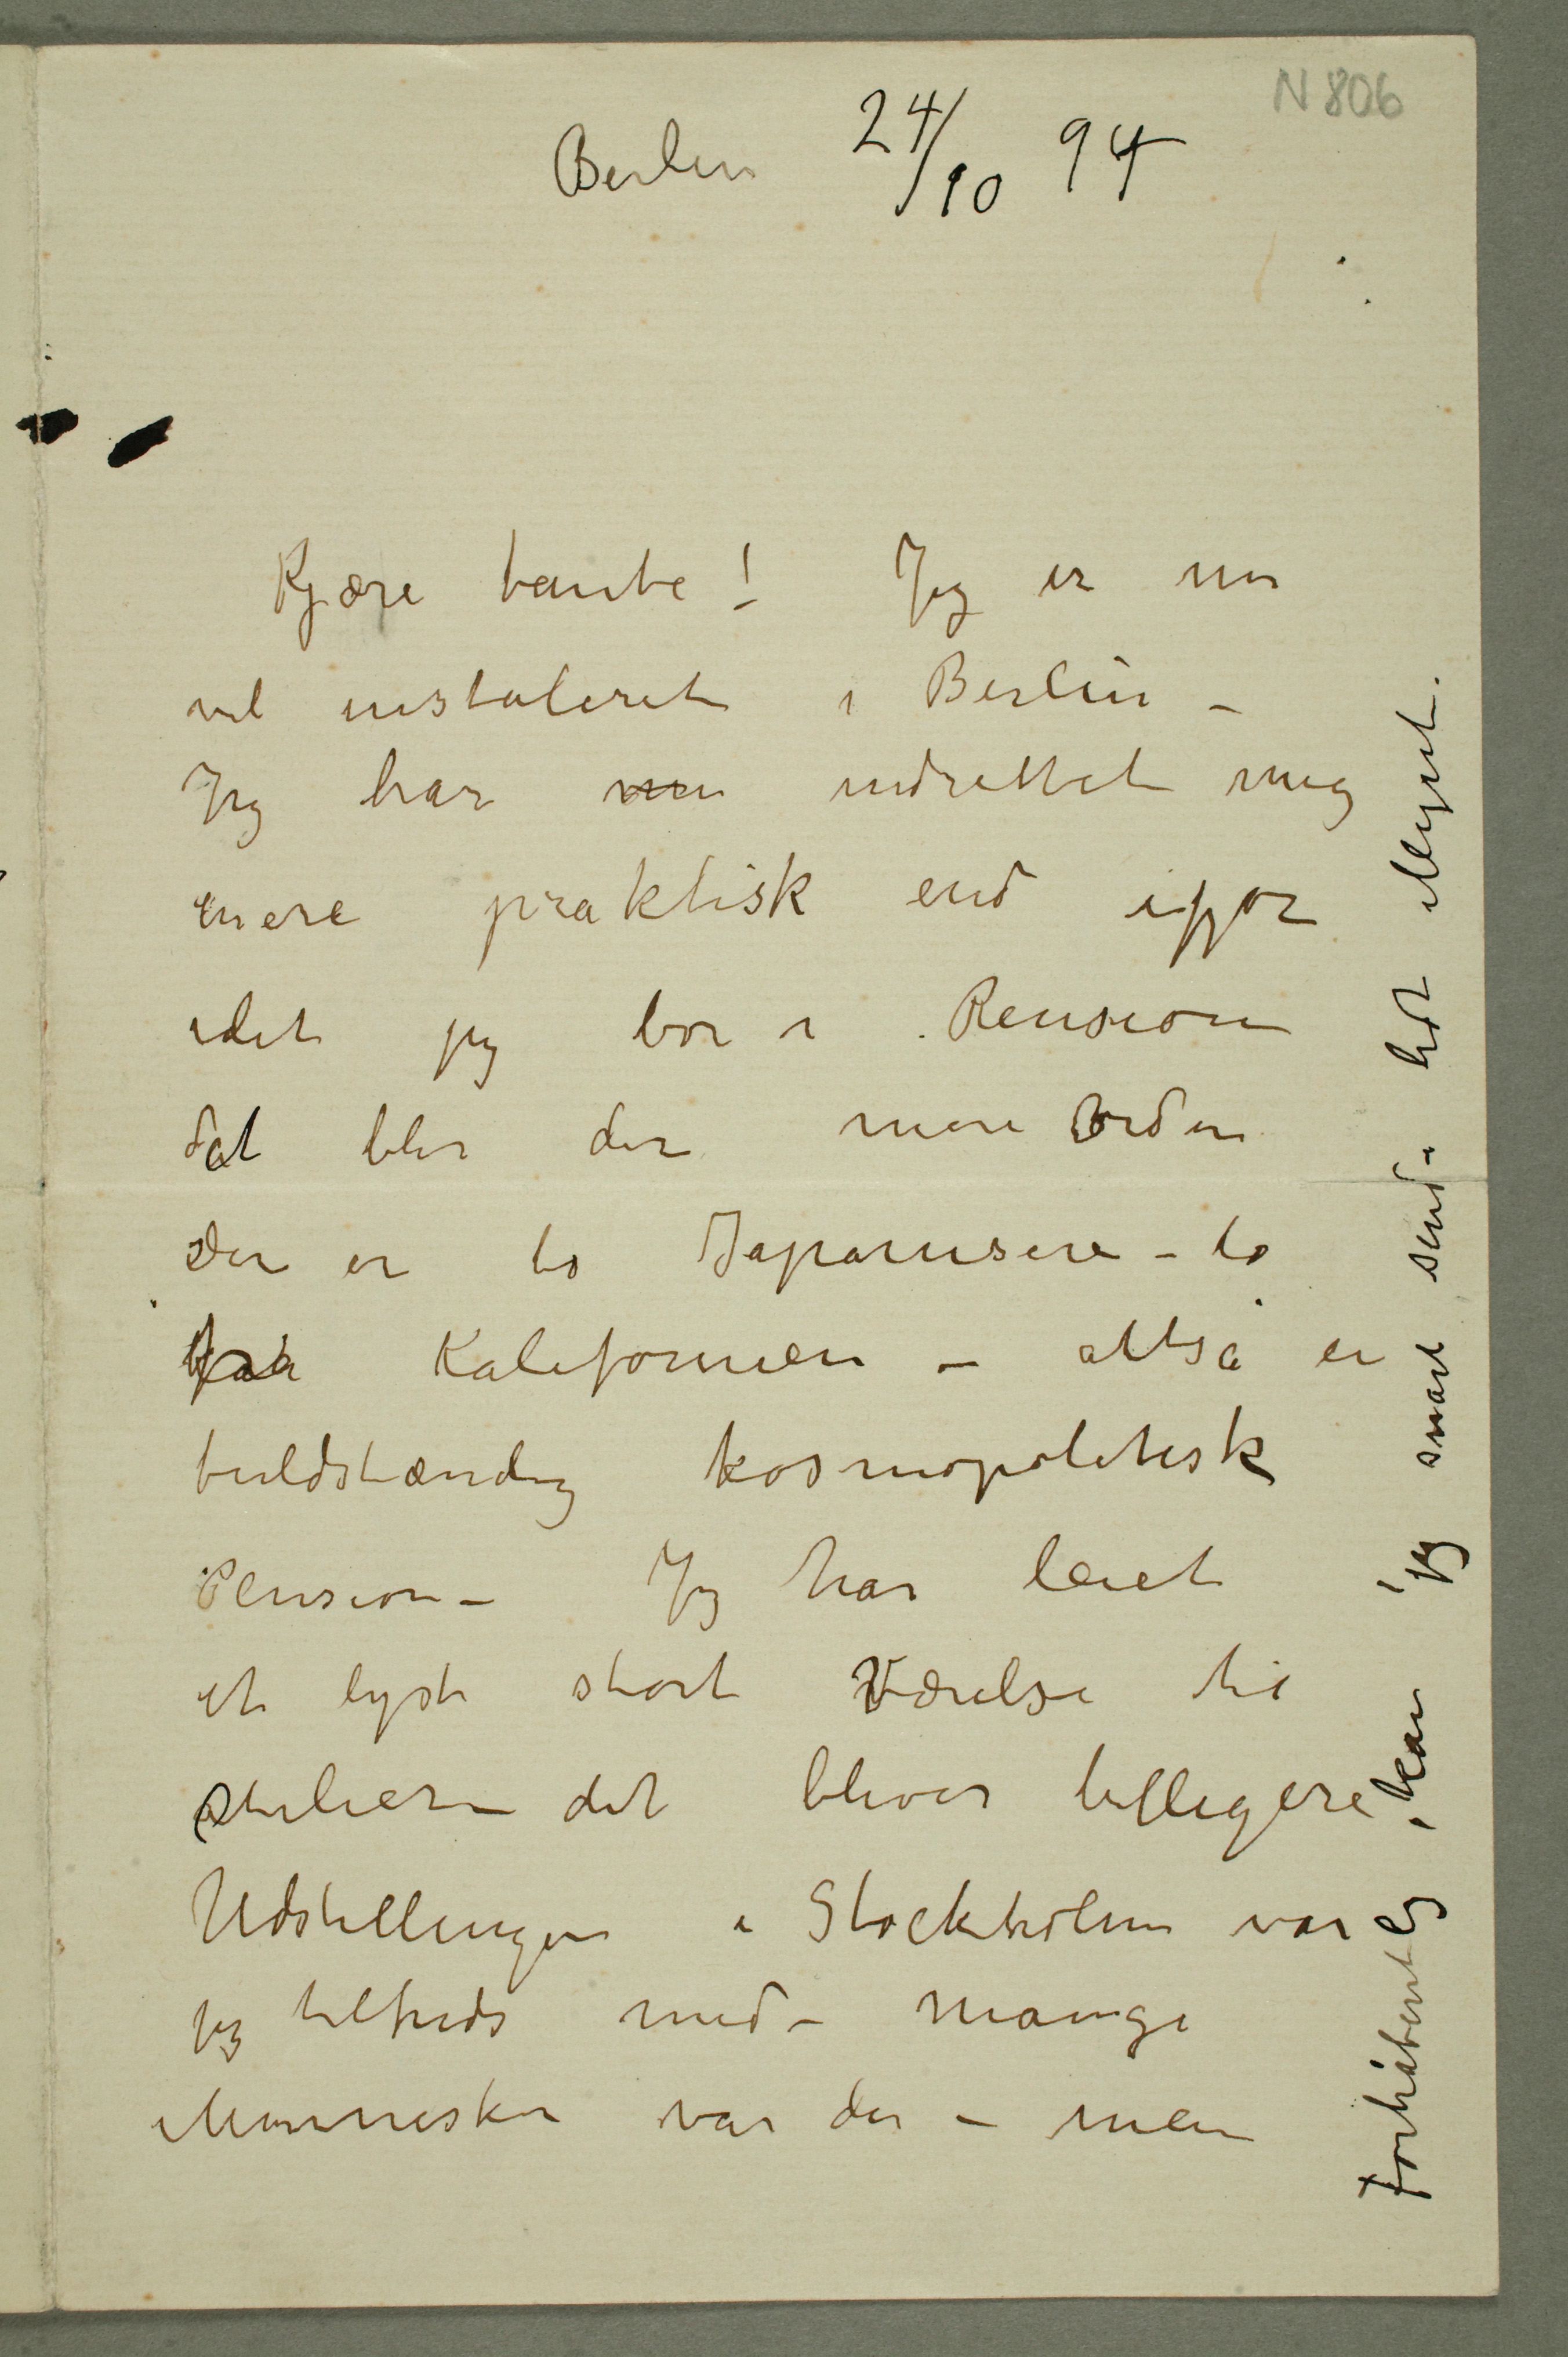 N 806
Berlin 24/10 94
Kjære tante! Jeg er nu
vel instaleret i Berlin –
Jeg har nu indrettet mig
mere praktisk end ifjor
idet jeg bor i Pension
dat blir der mere Orden
Der er to Japanisere – to
fra Kalifornien – altså en
fuldstændig kosmopolitisk
Pension – Jeg har leiet
et lyst stort Værelse til
Atelier – det bliver billigere
Udstillingen i Stockholm var
jeg tilfreds med – mange
Mennesker var der – men
Forhåbentlig kan jeg snart sende lidt Mynt.